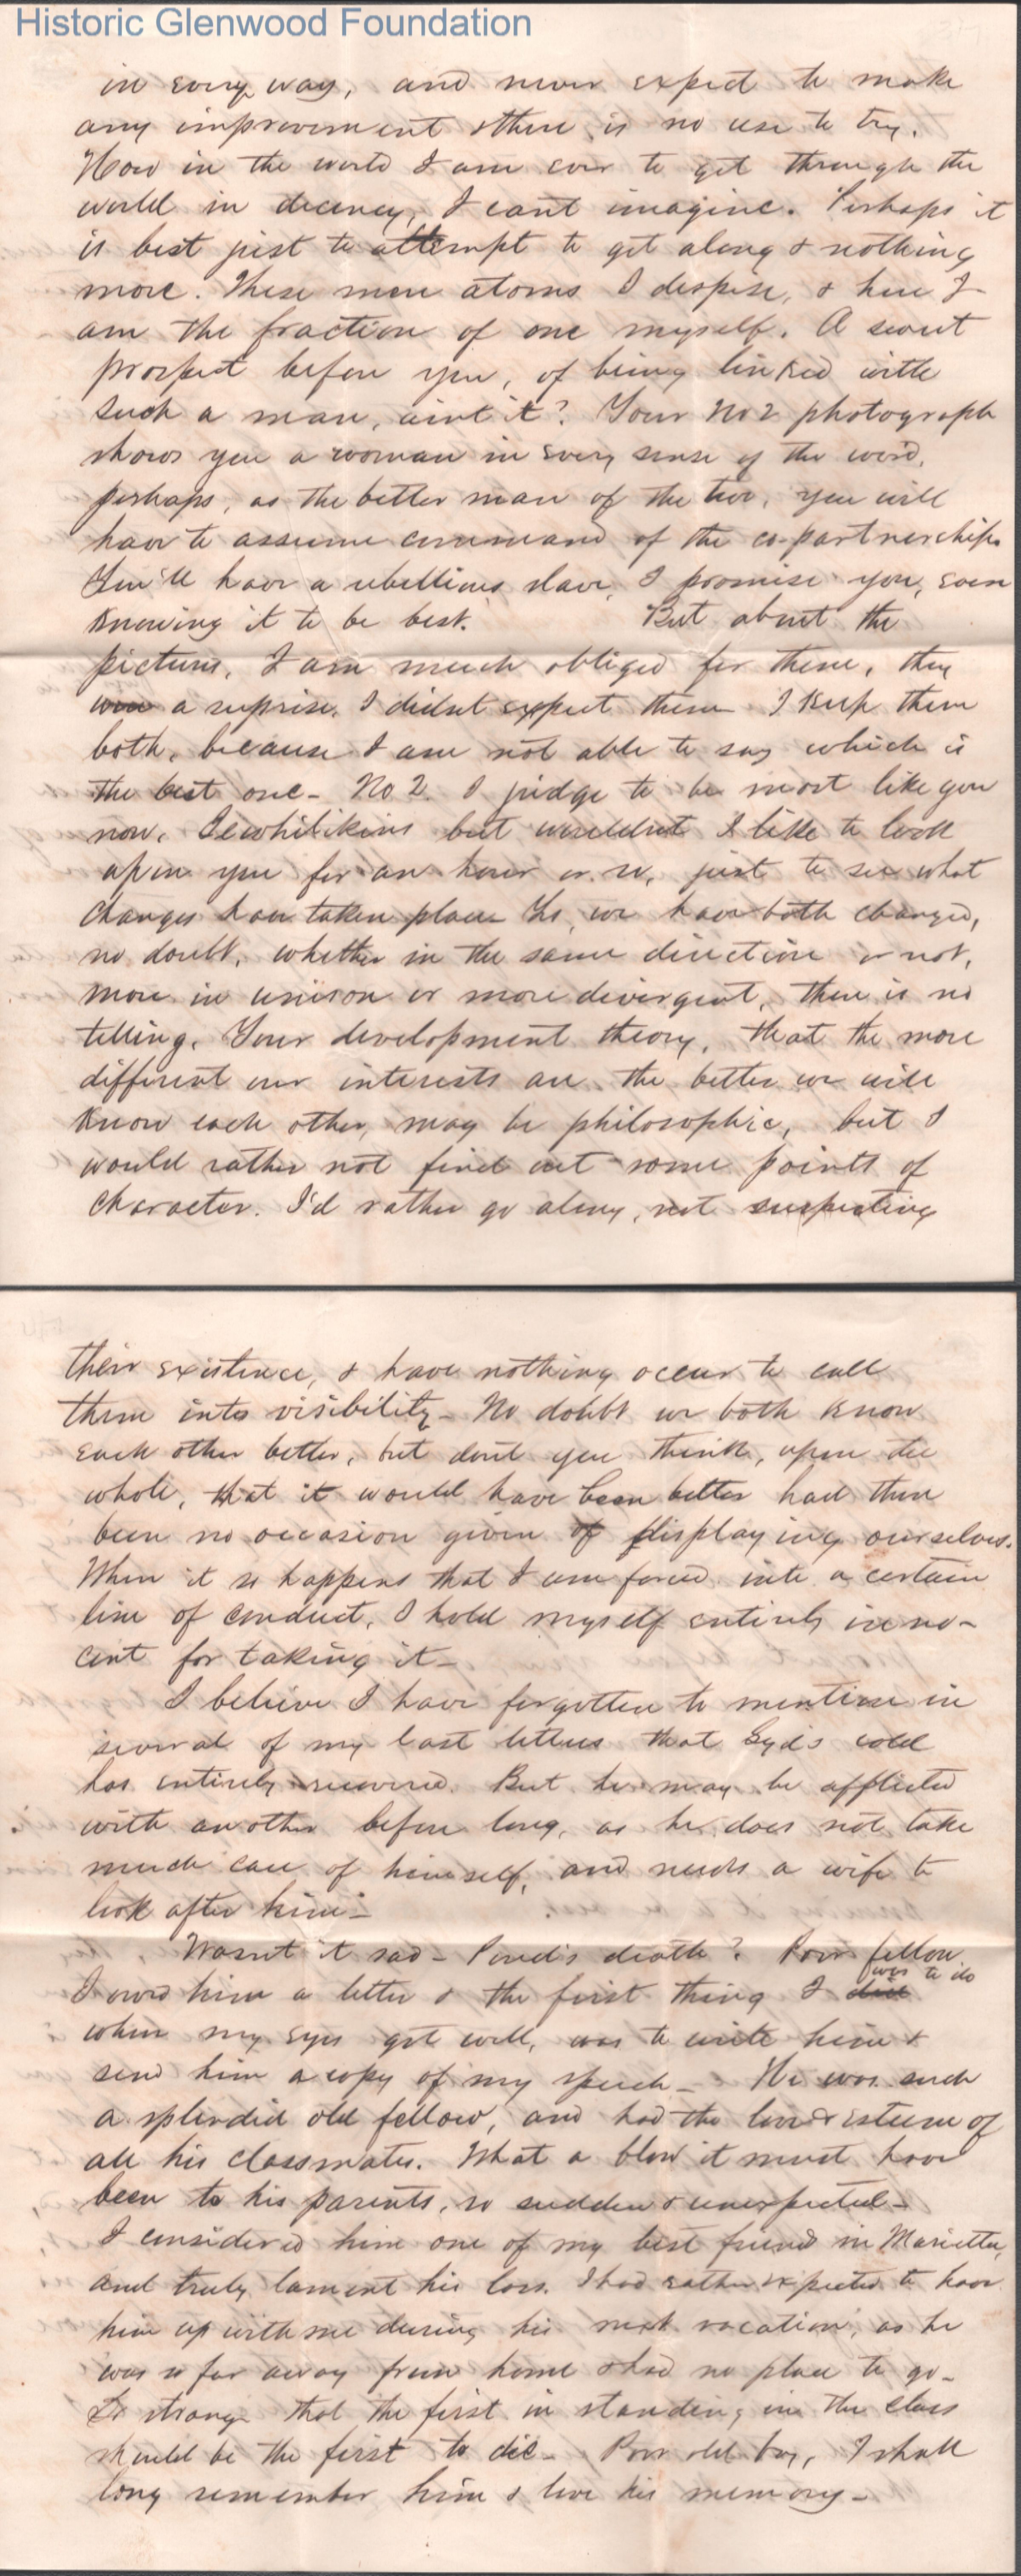 Historic Glenwood Foundation
in every way, and never expect to make
any improvement & there is no use to try.
How in the world I am ever to get through the
world in decency, I can't imagine. Perhaps it
is best just to attempt to get along & nothing
more. These mere atoms I despise, & here I
am the fraction of one myself. A sweet
prospect before you, of being linked with
such a man, aint it? Your No 2 photograph
shows you a woman in every sense of the word,
perhaps, as the better man of the two, you will
have to assume command of the co-partnership.
You'll have a rebellious slave, I promise you, even
knowing it to be best. But about the
pictures, I am much obliged for them, they
were a suprise. I didn't expect them I keep them
both, because I am not able to say which is
the best one - No 2. I judge to be most like you
now. Jewhilikins but wouldn't I like to look
upon you for an hour or so, just to see what
changes have taken place Yes, we have both changed,
no doubt, whether in the same direction or not,
more in unison or more divergent, there is no
telling. Your development theory, that the more
different our interests are the better we will
know each other, may be philosophic, but I
would rather not find out some points of
character. I'd rather go along, not suspecting
their existence, & have nothing occur to call
them into visibility - No doubt we both know
each other better, but don't you think, upon the
whole, that it would have been better had there
been no occasion given of displaying ourselves.
When it so happens that I am forced into a certain
line of conduct, I hold myself entirely inno-
cent for taking it -
I believe I have forgotten to mention in
several of my last letters that Syd's cold
has entirely recovered. But he may be afflicted
with another before long, as he does not take
much care of himself, and needs a wife to
look after him -
Wasn't it sad - Pond's death? Poor fellow
I owed him a letter & the first thing I did was to do
when my eyes got well, was to write him &
send him a copy of my speech - He was such
a splendid old fellow, and had the love & esteem of
all his classmates. What a blow it must have
been to his parents, so sudden & unexpected -
I considered him one of my best friend in Marietta,
and truly lament his loss. I had rather expected to have
him up with me during his next vacation, as he
was so far away from home & had no place to go -
Is strange that the first in standing in the class
should be the first to die - Poor old boy, I shall
long remember him & love his memory -